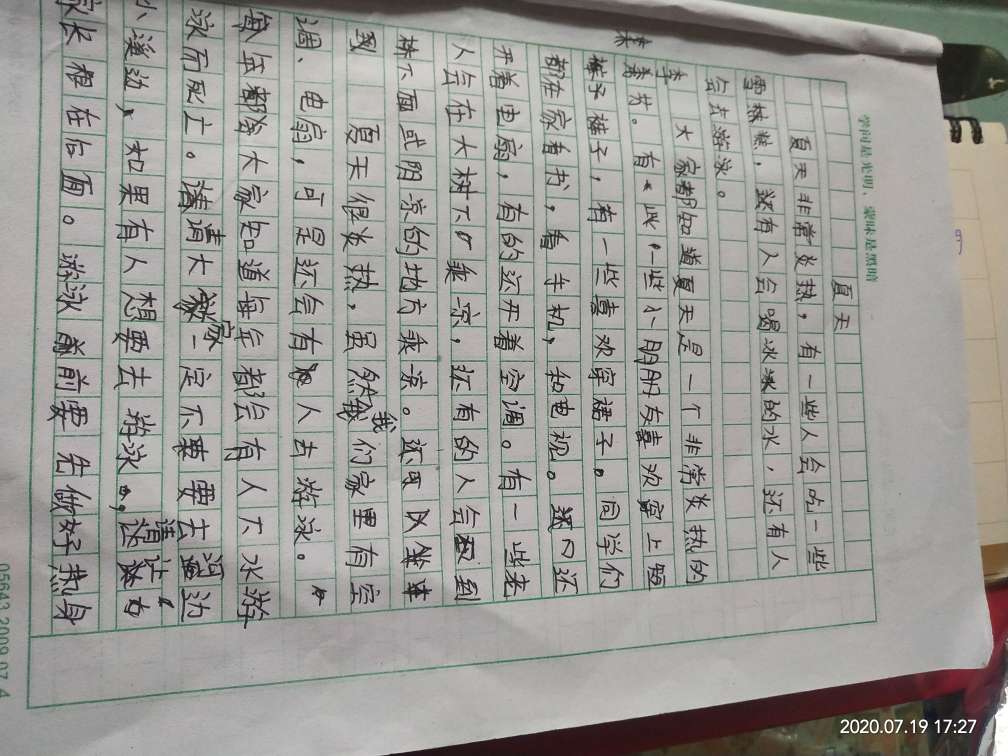 学问是光明，蒙昧是黑暗
夏天
夏天非常炎热，有一些人会吃一些
雪糕，还有人会喝冰冰的水，还有人
会去游泳。
大家都知道夏天是一个非常炎热的
季节。有一些小朋友喜欢穿上短
裤子，有一些喜欢穿裙子。同学们
都在家看书，看手机，和电视。还
开着电扇，有的还开着空调。有一些老
人会在大树下乘凉，还有的人会到
树下面或阴凉的地方乘凉。还可以
夏天很炎热，虽然我们家里有空
调、电扇，可是还会有人去游泳。
每年都会有人下水游
泳而死亡。请大家一定不要去河边
小溪边，如果有人想要去游泳，请让
家长跟在后面。游泳前要先做好热身
05643.2009.07.4
2020.07.19 17:27